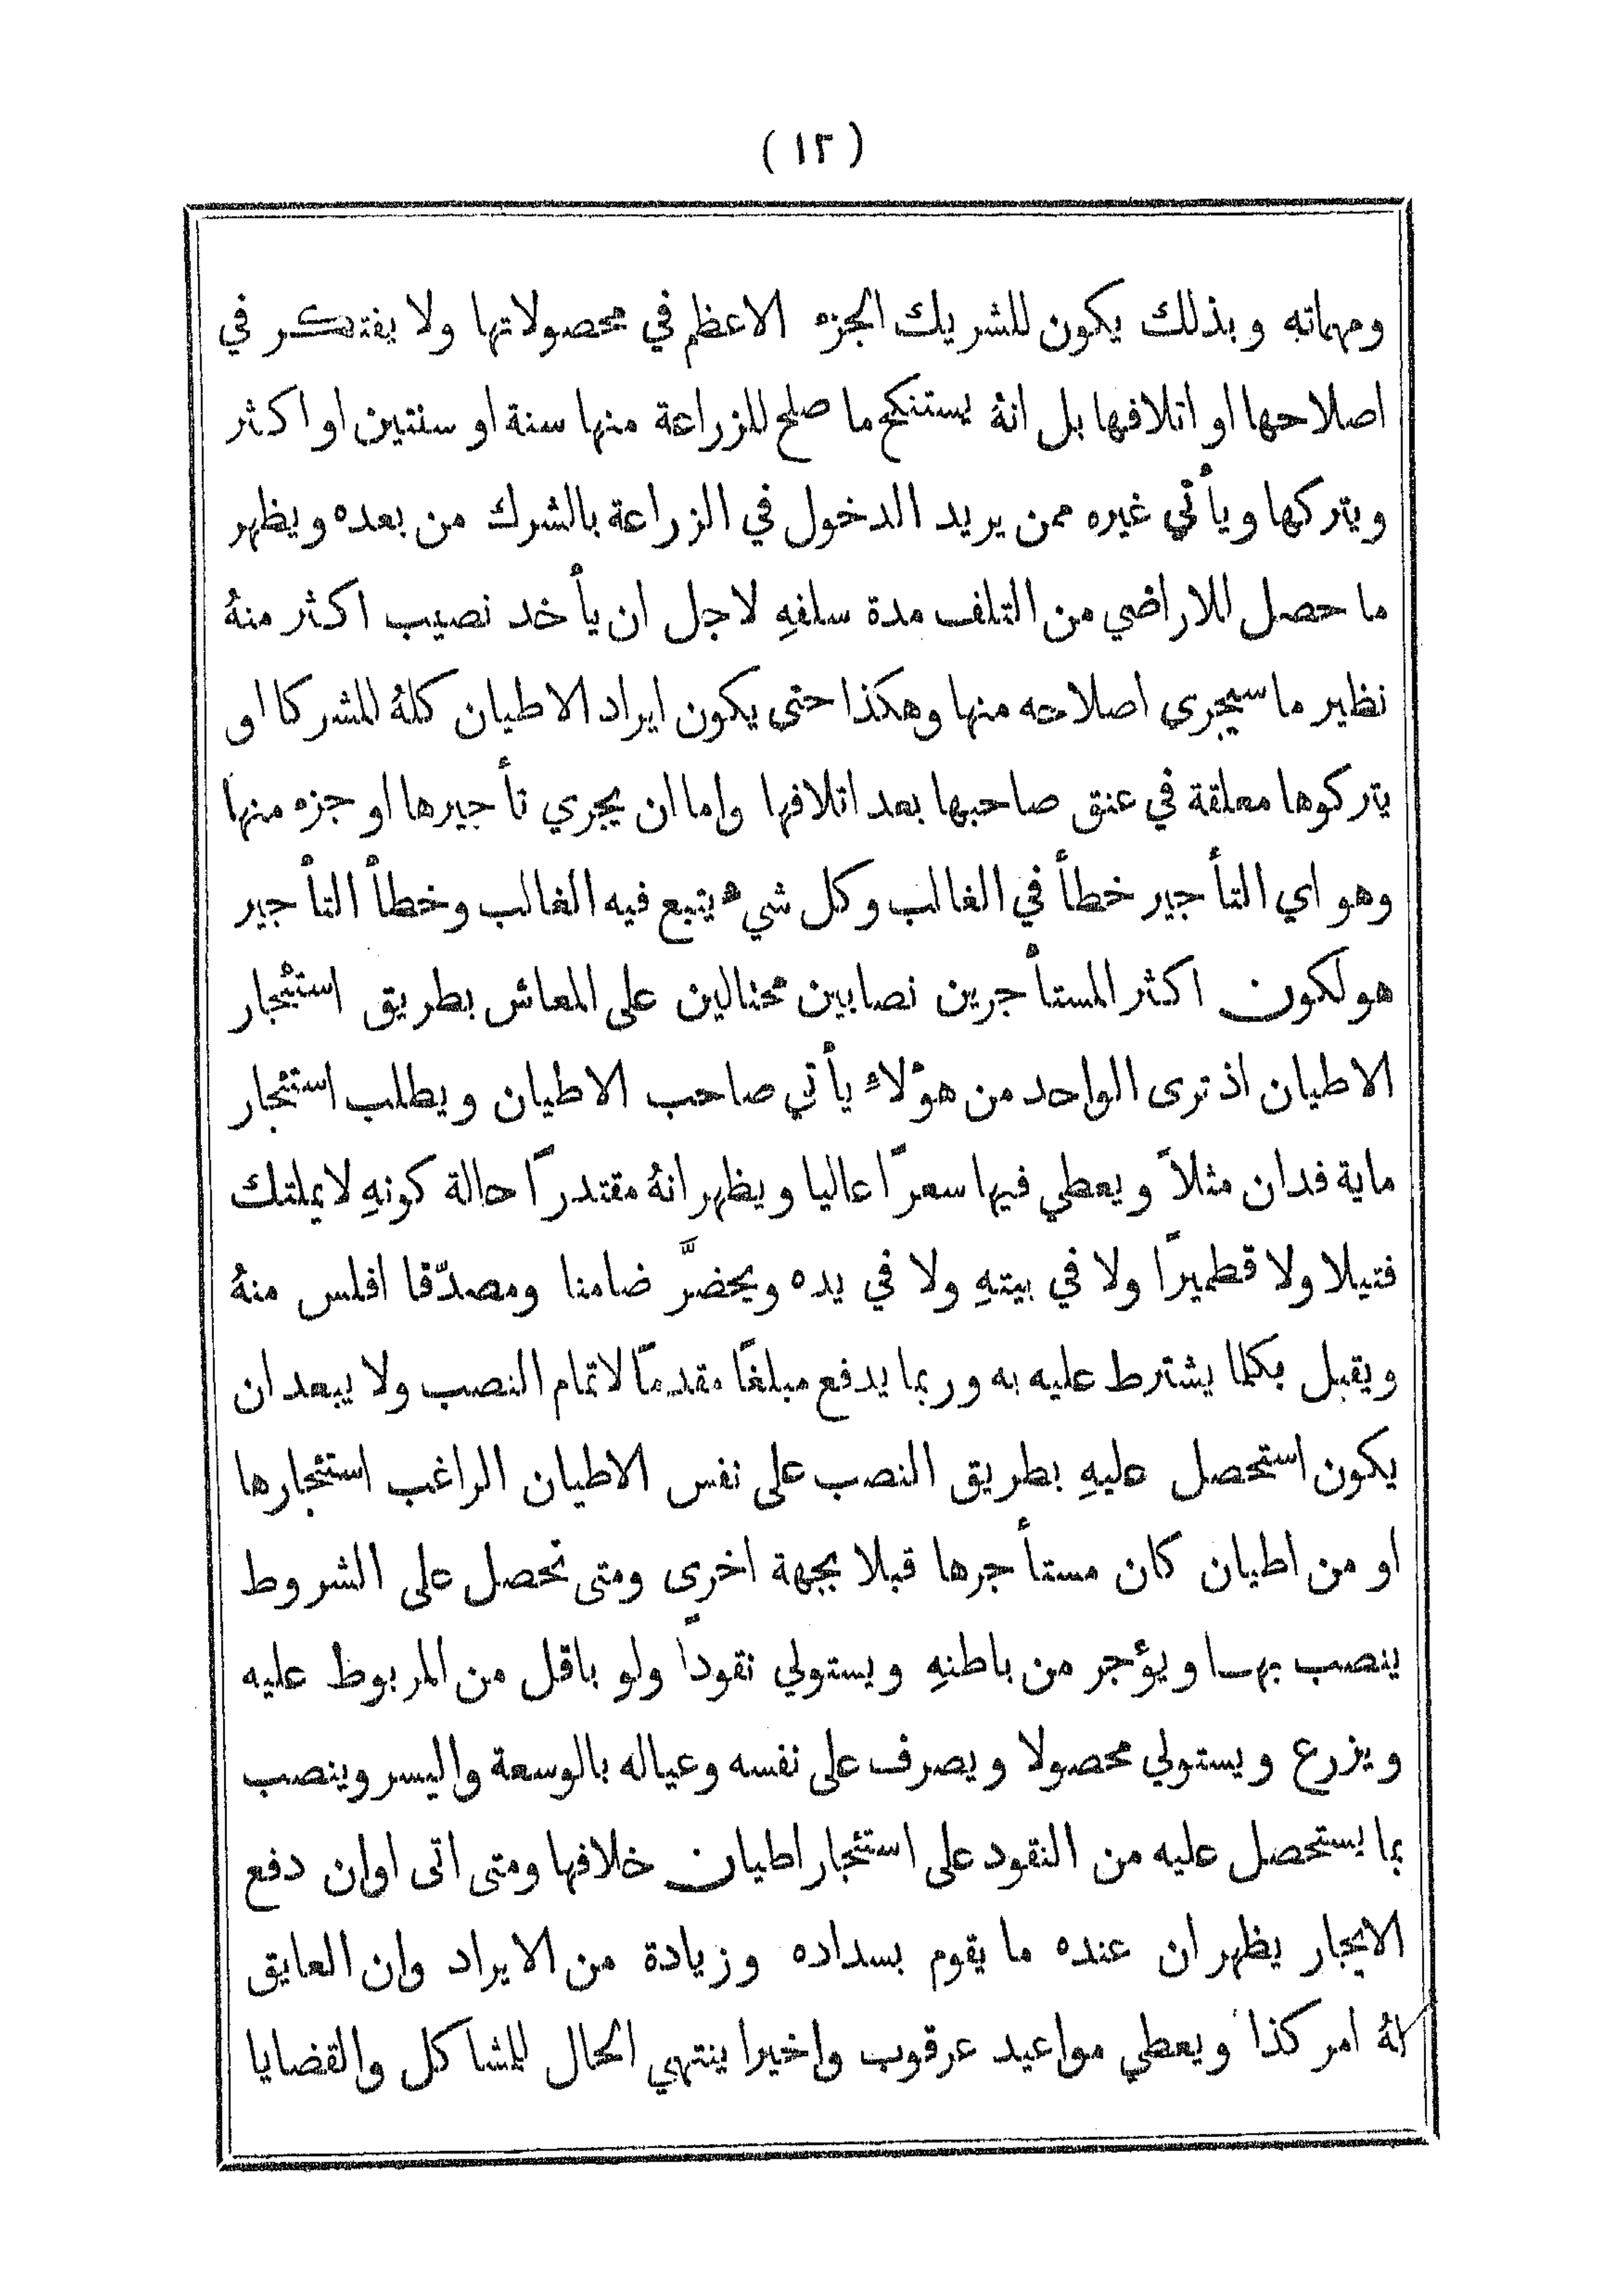 (١٣)
ومهماته وبذلك يكون للشريك الجزء الاعظم في محصولاتها ولا يفتكر في
اصلاحها او اتلافها بل انهُ يستنكح ما صلح للزراعة منها سنة او سنتين او اكثر
ويتركها ويأتي غيره ممن يريد الدخول في الزراعة بالشرك من بعده ويظهر
ما حصل للاراضي من التلف مدة سلفهِ لاجل ان يأخد نصيب اكثر منهُ
نظير ما سيجرى اصلاحه منها وهكذا حتى يكون ايراد الاطيان كلهُ للشركا او
يتركوها معلقة في عنق صاحبها بعد اتلافها واما ان يجري تأجيرها او جزء منها
وهو اي التأجير خطأ في الغالب وكل شيء يتبع فيه الغالب وخطأ التأجير
هو لكون اكثر المستأجرين نصابين محتالين على المعاش بطريق استئجار
الاطيان اذ ترى الواحد من هؤلاء يأتي صاحب الاطيان ويطلب استئجار
ماية فدان مثلاً ويعطي فيها سعرًا عاليا ويظهر انهُ مقتدرًا حالة كونهِ لا يملتك
فتيلا ولا قطميرًا ولا في بيتهِ ولا في يده ويحضرَّ ضامنا ومصدّقا افلس منهُ
ويقبل بكلما يشترط عليه به وربما يدفع مبلغًا مقدمًا لاتمام النصب ولا يبعد ان
يكون استحصل عليهِ بطريق النصب على نفس الاطيان الراغب استئجارها
او من اطيان كان مستأجرها قبلا بجهة اخرى ومتى تحصل على الشروط
ينصب بها ويؤجر من باطنهِ ويستولي نقودًا ولو باقل من المربوط عليه
ويزرع ويستولي محصولا ويصرف على نفسه وعياله بالوسعة واليسر وينصب
بما يستحصل عليه من النقود على استئجار اطيان خلافها ومتى اتى اوان دفع
الايجار يظهر ان عنده ما يقوم بسداده وزيادة من الايراد وان العايق
لهُ امر كذا ويعطي مواعيد عرقوب واخيرا ينتهي الحال للمشاكل والقضايا